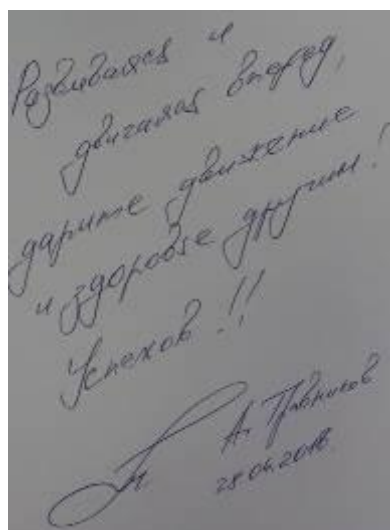 Развиваясь и
двигаясь вперед,
дарите движение
и здоровье другим!
Успехов!!
А.
28.04.2018